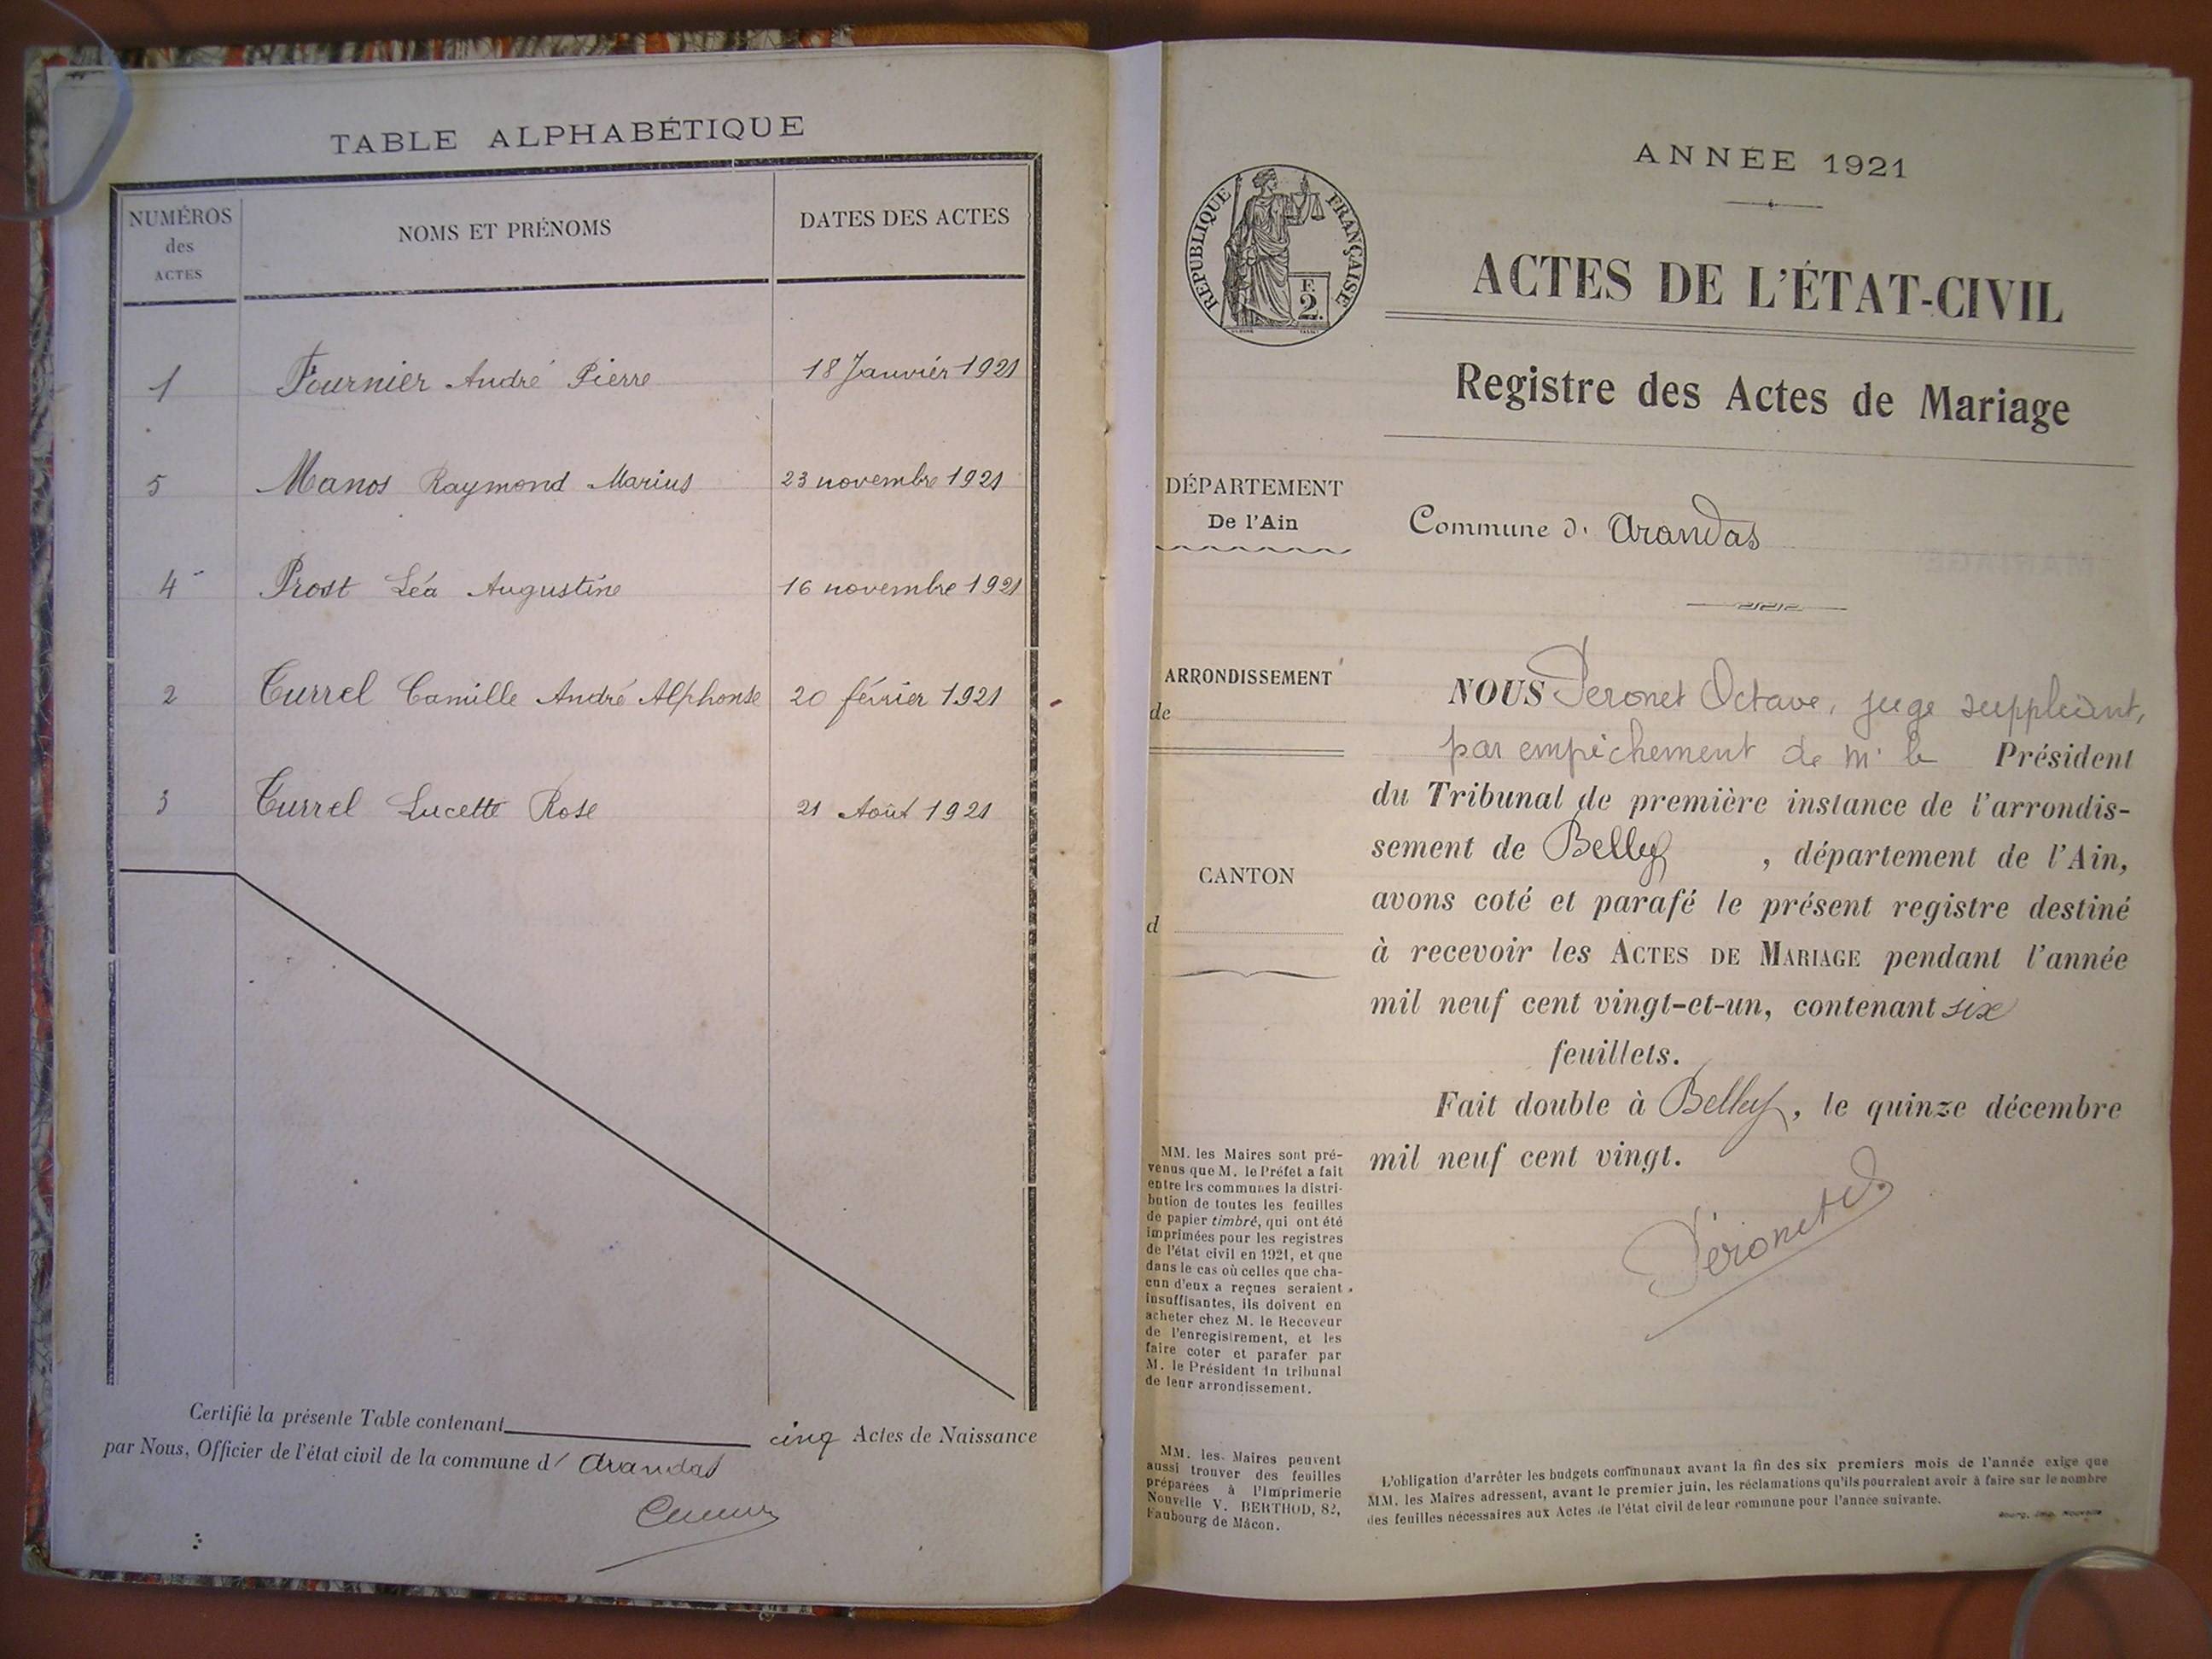 TABLE ALPHABÉTIQUE
NUMÉROS des ACTES
NOMS ET PRÉNOMS
DATES DES ACTES
1 Fournier André Pierre 18 Janvier 1921
5 Manos Raymond Marius 23 novembre 1921
4 Prost Léa Augustine 16 novembre 1921
2 Turrel Camille André Alphonse 20 février 1921
3 Turrel Lucette Rose 21 Août 1921
Certifié la présente Table contenant cinq Actes de Naissance
par Nous, Officier de l'état civil de la commune d' Arandas
ANNÉE 1921
RÉPUBLIQUE FRANÇAISE
F.
2.
ACTES DE L'ÉTAT-CIVIL
Registre des Actes de Mariage
DÉPARTEMENT
De l'Ain
Commune d' Arandas
ARRONDISSEMENT
de
CANTON
d
NOUS Peronet Octave, juge suppléant,
par empêchement de Mr le Président
du Tribunal de première instance de l'arrondis-
sement de Belley, département de l'Ain,
avons coté et parafé le présent registre destiné
à recevoir les ACTES DE MARIAGE pendant l'année
mil neuf cent vingt-et-un, contenant six
feuillets.
Fait double à Belley, le quinze décembre
mil neuf cent vingt.
Péronet
MM. les Maires sont pré-
venus que M. le Préfet a fait
entre les communes la distri-
bution de toutes les feuilles
de papier timbré, qui ont été
imprimées pour les registres
de l'état civil en 1921, et que
dans le cas où celles que cha-
cun d'eux a reçues seraient
insuffisantes, ils doivent en
acheter chez M. le Receveur
de l'enregistrement, et les
faire coter et parafer par
M. le Président du tribunal
de leur arrondissement.
MM. les Maires peuvent
aussi trouver des feuilles
préparées à l'Imprimerie
Nouvelle V. BERTHOD, 82,
Faubourg de Mâcon.
L'obligation d'arrêter les budgets communaux avant la fin des six premiers mois de l'année exige que
MM. les Maires adressent, avant le premier juin, les réclamations qu'ils pourraient avoir à faire sur le nombre
des feuilles nécessaires aux Actes de l'état civil de leur commune pour l'année suivante.
Bourg, Imp. Nouvelle